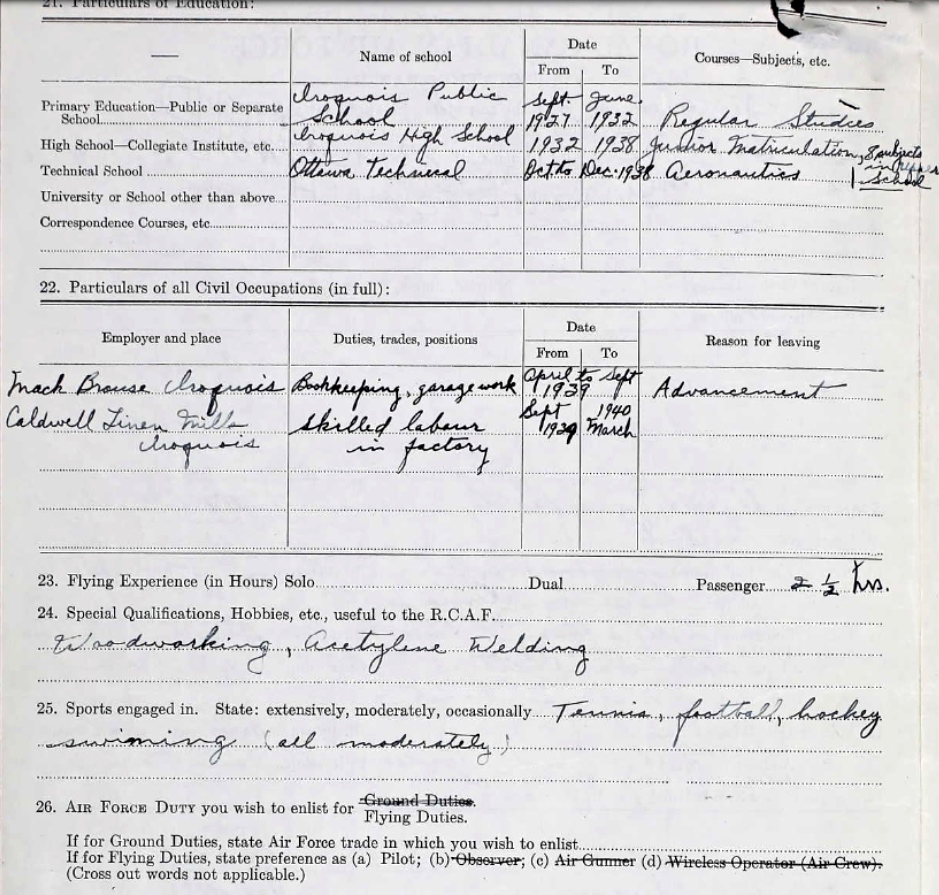 21. Particulars of Education:
— Name of school Date Courses—Subjects, etc.
From To
Iroquois Public Sept. June
Primary Education—Public or Separate
School School 1927 1932 Regular Studies
High School—Collegiate Institute, etc. Iroquois High School 1932 1938 Junior Matriculation, 8 subjects
in Upper
Technical School Ottawa Technical Oct to Dec. 1938 Aeronautics School
University or School other than above
Correspondence Courses, etc.
22. Particulars of all Civil Occupations (in full):
Employer and place Duties, trades, positions Date Reason for leaving
From To
Mack Brouse Iroquois Bookkeeping, garage work April to Sept 1939 Advancement
Caldwell Linen Mills skilled labour Sept 1939 1940 March
Iroquois in factory
23. Flying Experience (in Hours) Solo Dual Passenger 2 ½ hrs.
24. Special Qualifications, Hobbies, etc., useful to the R.C.A.F.
Woodworking, Acetylene Welding
25. Sports engaged in. State: extensively, moderately, occasionally Tennis, football, hockey
swiming (all moderately)
26. AIR FORCE DUTY you wish to enlist for Ground Duties.
Flying Duties.
If for Ground Duties, state Air Force trade in which you wish to enlist
If for Flying Duties, state preference as (a) Pilot; (b) Observer; (c) Air Gunner (d) Wireless Operator (Air Crew).
(Cross out words not applicable.)